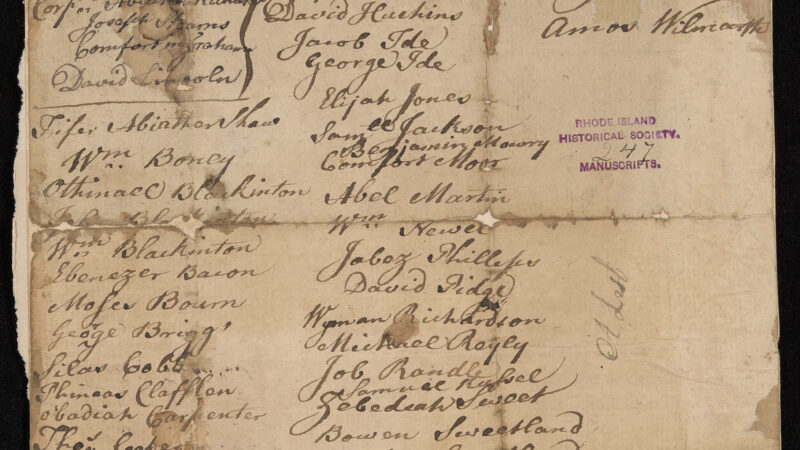 Joseph Stearns
Comfort Ingraham
David Lincoln
Fifer Abiather Shaw
Wm Boney
Othinael Blackinton
Wm Blackinton
Ebenezer Bacon
Moses Bourn
George Brigg'
Silas Cobb
Phineas Clafflen
obadiah Carpenter
David Huchins
Jacob Ide
George Ide
Elijah Jones
Samll Jackson
Benjamin Mowry
Comfort Moor
Abel Martin
Wm Newel
Jabez Phillips
David Pidge
Wyman Richardson
Michael Regly
Job Randle
Samuel Russel
Zebediah Sweet
Bowen Sweetland
Amos Wilmarth
RHODE ISLAND
HISTORICAL SOCIETY.
247
MANUSCRIPTS.